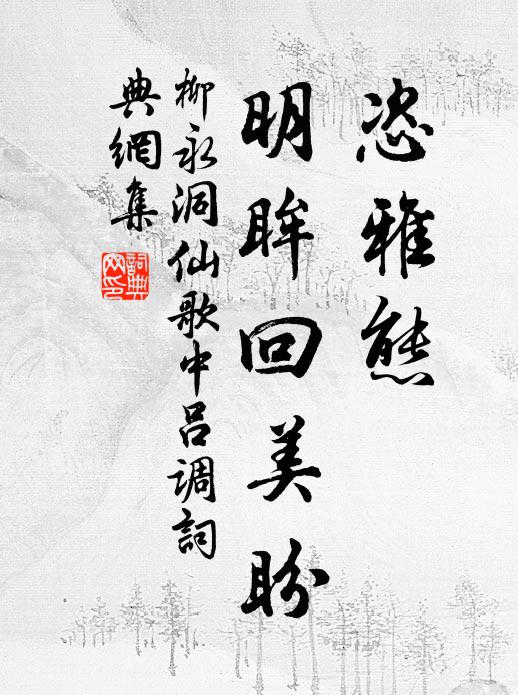 恣雅態
明眸回美盼
柳永洞仙歌中吕调詞
典網集
詞典
网印